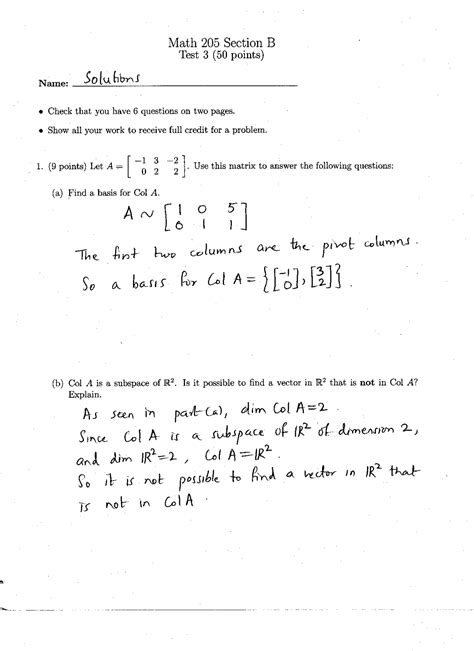 Math 205 Section B
Test 3 (50 points)
Name: Solutions
• Check that you have 6 questions on two pages.
• Show all your work to receive full credit for a problem.
1. (9 points) Let A = [ -1 3 -2 ; 0 2 2 ]. Use this matrix to answer the following questions:
(a) Find a basis for Col A.
A ~ [ 1 0 5 ; 0 1 1 ]
The first two columns are the pivot columns.
So a basis for Col A = { [ -1 ; 0 ], [ 3 ; 2 ] }.
(b) Col A is a subspace of ℝ². Is it possible to find a vector in ℝ² that is not in Col A?
Explain.
As seen in part (a), dim Col A = 2.
Since Col A is a subspace of ℝ² of dimension 2,
and dim ℝ² = 2, Col A = ℝ².
So it is not possible to find a vector in ℝ² that
is not in Col A.